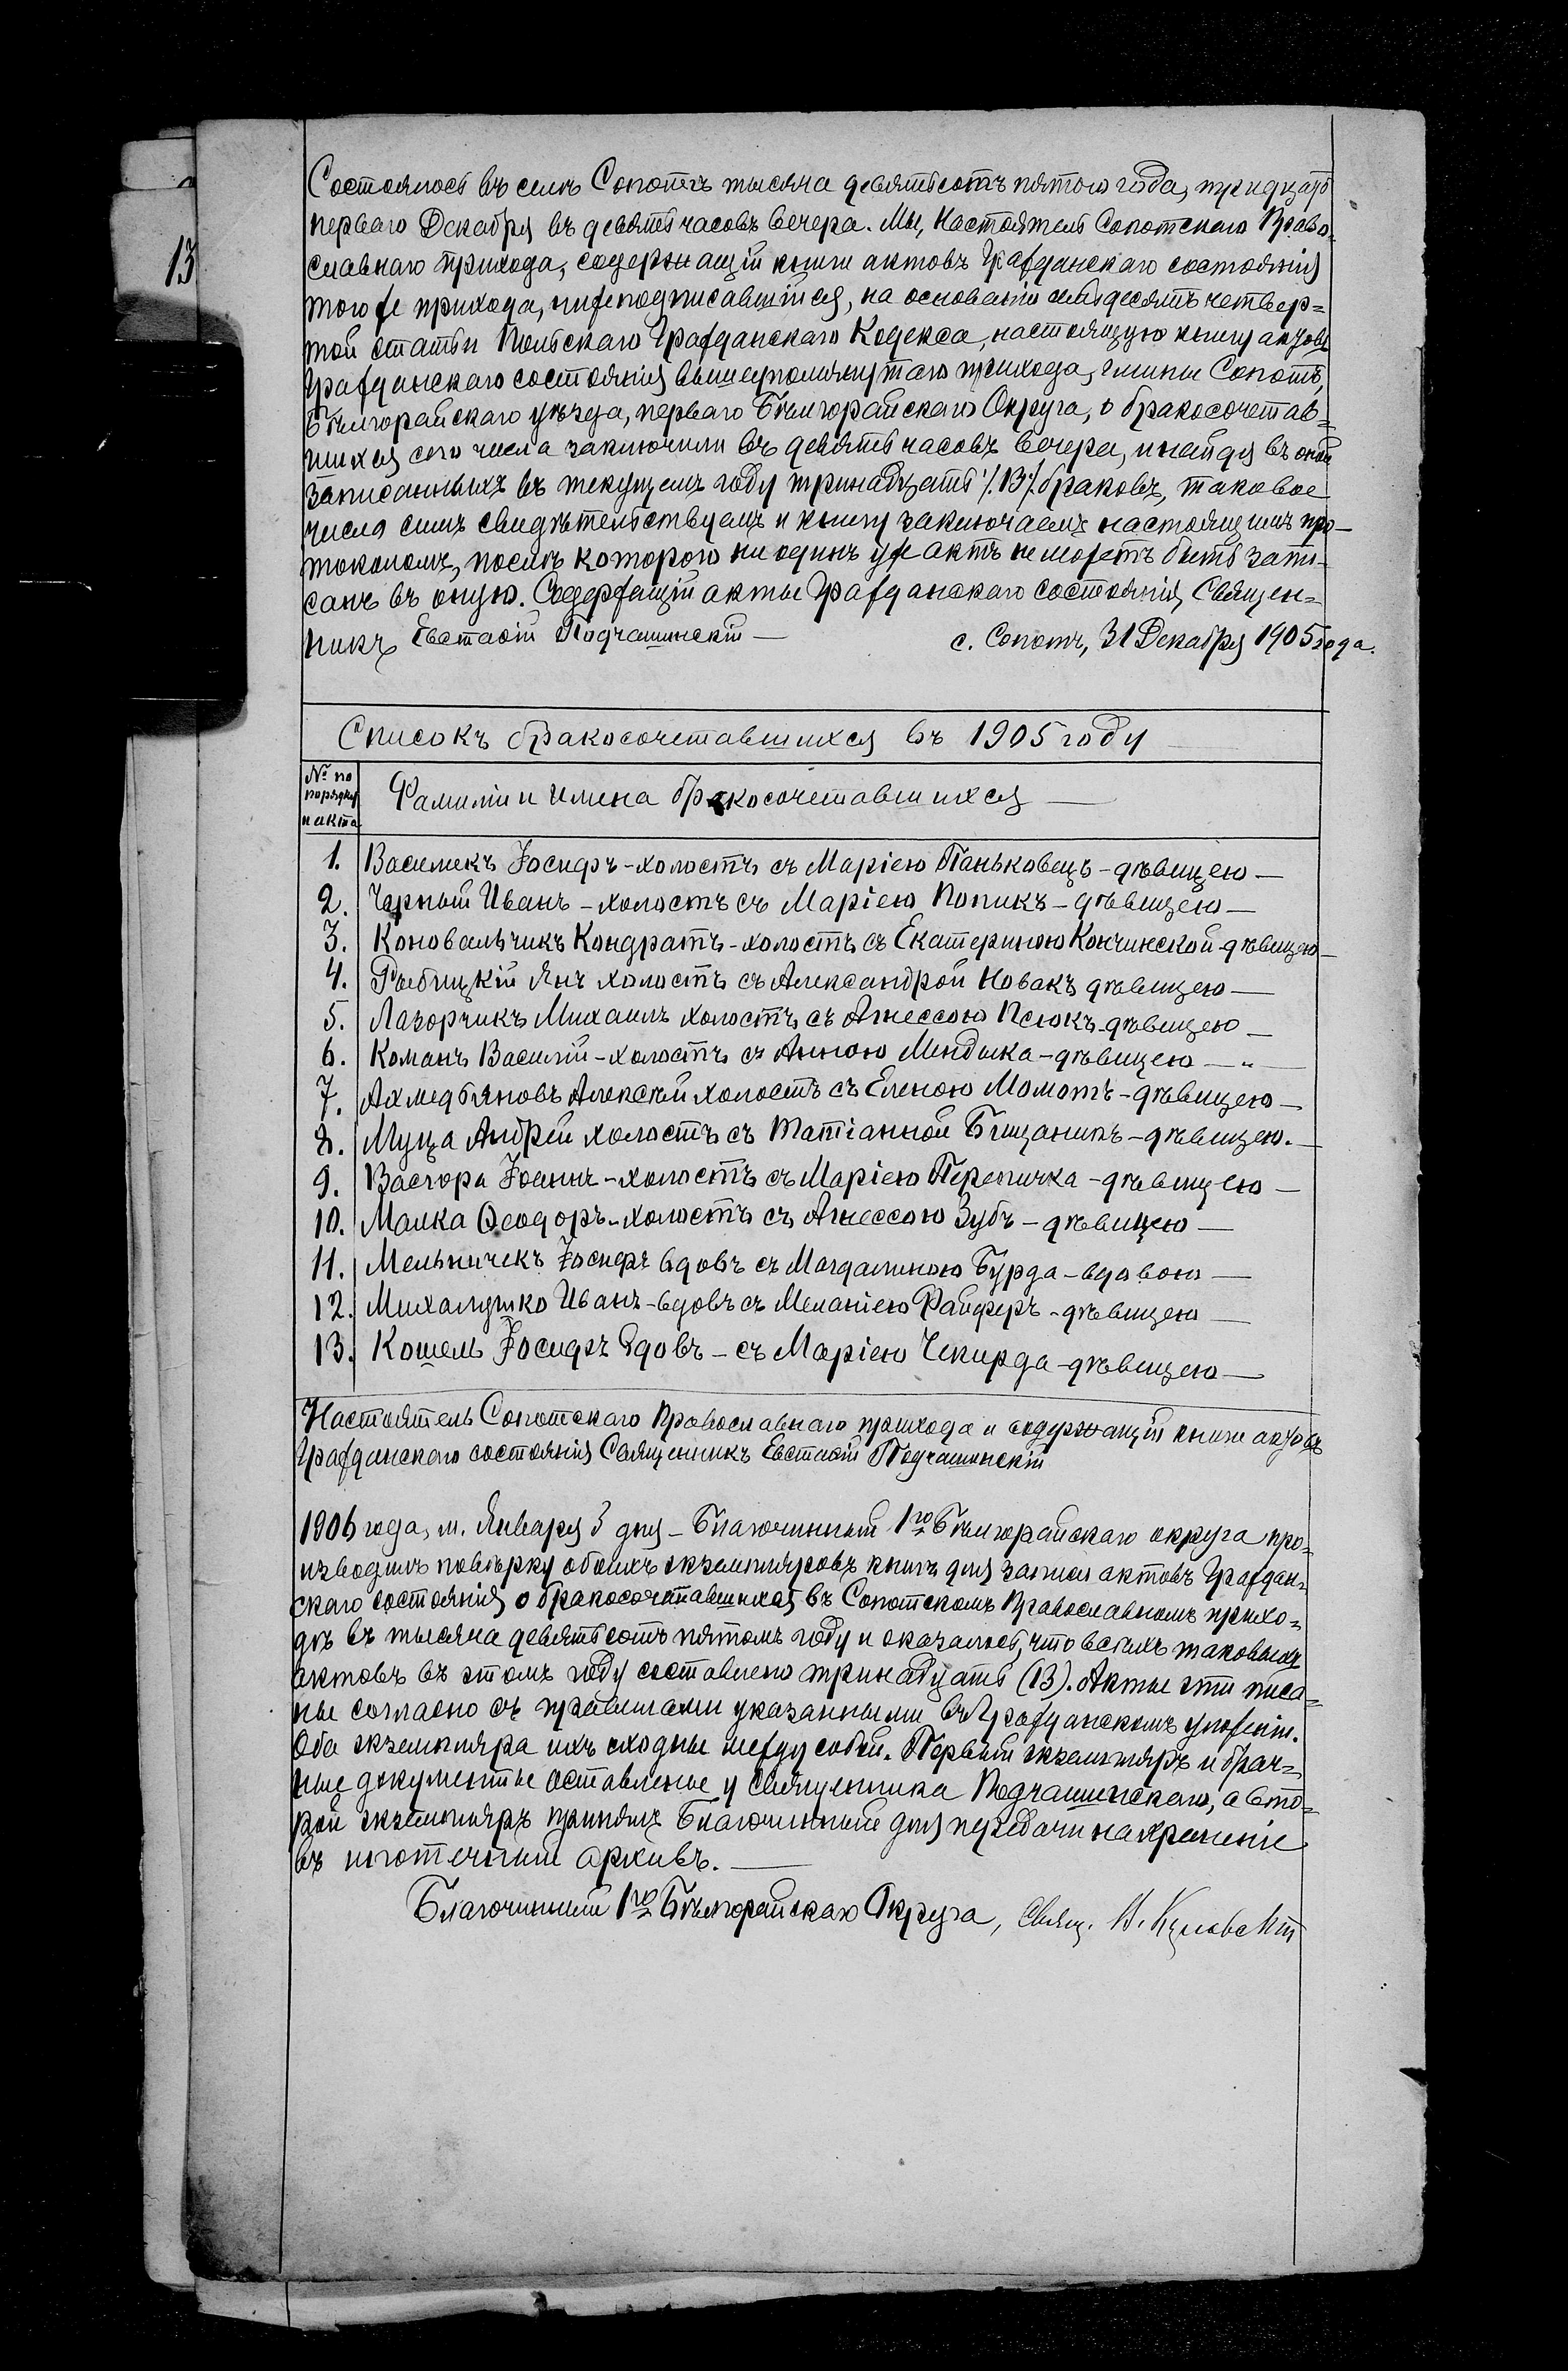 13
Состоялось въ селѣ Сопотѣ тысяча девятьсотъ пятого года, тридцать
перваго Декабря въ девять часовъ вечера. Мы, Настоятель Сопотскаго Право-
славнаго прихода, содержащій книги актовъ Гражданскаго состоянія
того же прихода, нижеподписавшійся, на основаніи семьдесятъ четвер=
той статьи Польскаго Гражданскаго Кодекса, настоящую книгу актовъ
Гражданскаго состоянія вышеупомянутаго прихода, гмины Сопотъ,
Бѣлгорайскаго уѣзда, перваго Бѣлгорайскаго Округа, о бракосочетав=
шихся сего числа заключили въ девять часовъ вечера, и найдя въ оной
записанныхъ въ текущемъ году тринадцать ./.13./. браковъ, таковое
число симъ свидѣтельствуемъ и книгу заключаемъ настоящимъ про-
токоломъ, послѣ котораго ни одинъ уже актъ не можетъ быть запи-
санъ въ оную. Содержащій акты Гражданскаго состоянія, Священ=
никъ Евстафій Подчашинскій —
с. Сопотъ, 31 Декабря 1905 года.
Списокъ бракосочетавшихся въ 1905 году
№ по
порядку
и акта
Фамиліи и Имена бракосочетавшихся —
1. Василикъ Іосифъ - холостъ съ Маріею Паньковецъ - дѣвицею —
2. Чарный Иванъ - холостъ съ Маріею Попикъ - дѣвицею —
3. Коновальчикъ Кондратъ - холостъ съ Екатериною Кончинской - дѣвицею —
4. Рыбицкій Янъ холостъ съ Александрой Новакъ дѣвицею —
5. Лазорчикъ Михаилъ холостъ съ Агнессою Псюкъ - дѣвицею —
6. Команъ Василій - холостъ съ Анною Мендыка - дѣвицею — " —
7. Ахмедьяновъ Алексѣй холостъ съ Еленою Момотъ - дѣвицею —
8. Муца Андрей холостъ съ Татіанной Бищаникъ - дѣвицею. —
9. ВаChора Іоаннъ - холостъ съ Маріею Перепичка - дѣвицею —
10. Малка Ѳеодоръ - холостъ съ Агнессою Зубъ - дѣвицею —
11. Мельничекъ Іосифъ вдовъ съ Магдалиною Бурда - вдовою —
12. Михалушко Иванъ - вдовъ съ Меланіею Файферъ - дѣвицею —
13. Кошель Іосифъ вдовъ - съ Маріею Чекирда - дѣвицею —
Настоятель Сопотскаго Православнаго прихода и содержащій книги актовъ
Гражданскаго состоянія Священникъ Евстафій Подчашинскій
1906 года, м. Января 3 дня - Благочинный 1го Бѣлгорайскаго округа про=
изводилъ повѣрку обоихъ экземпляровъ книгъ для записи актовъ Граждан=
скаго состоянія о бракосочетавшихся въ Сопотскомъ Православномъ прихо=
дѣ въ тысяча девятьсотъ пятомъ году и оказалось, что всѣхъ таковыхъ
актовъ въ этомъ году составлено тринадцать (13). Акты эти писа=
ны согласно съ правилами указанными въ Гражданскомъ уложеніи.
Оба экземпляра ихъ сходны между собой. Первый экземпляръ и брач=
ные документы оставлены у Священника Подчашинскаго, а вто=
рой экземпляръ принялъ Благочинный для передачи на храненіе
въ ипотечный архивъ. —
Благочинный 1го Бѣлгорайскаго Округа, Свящ.